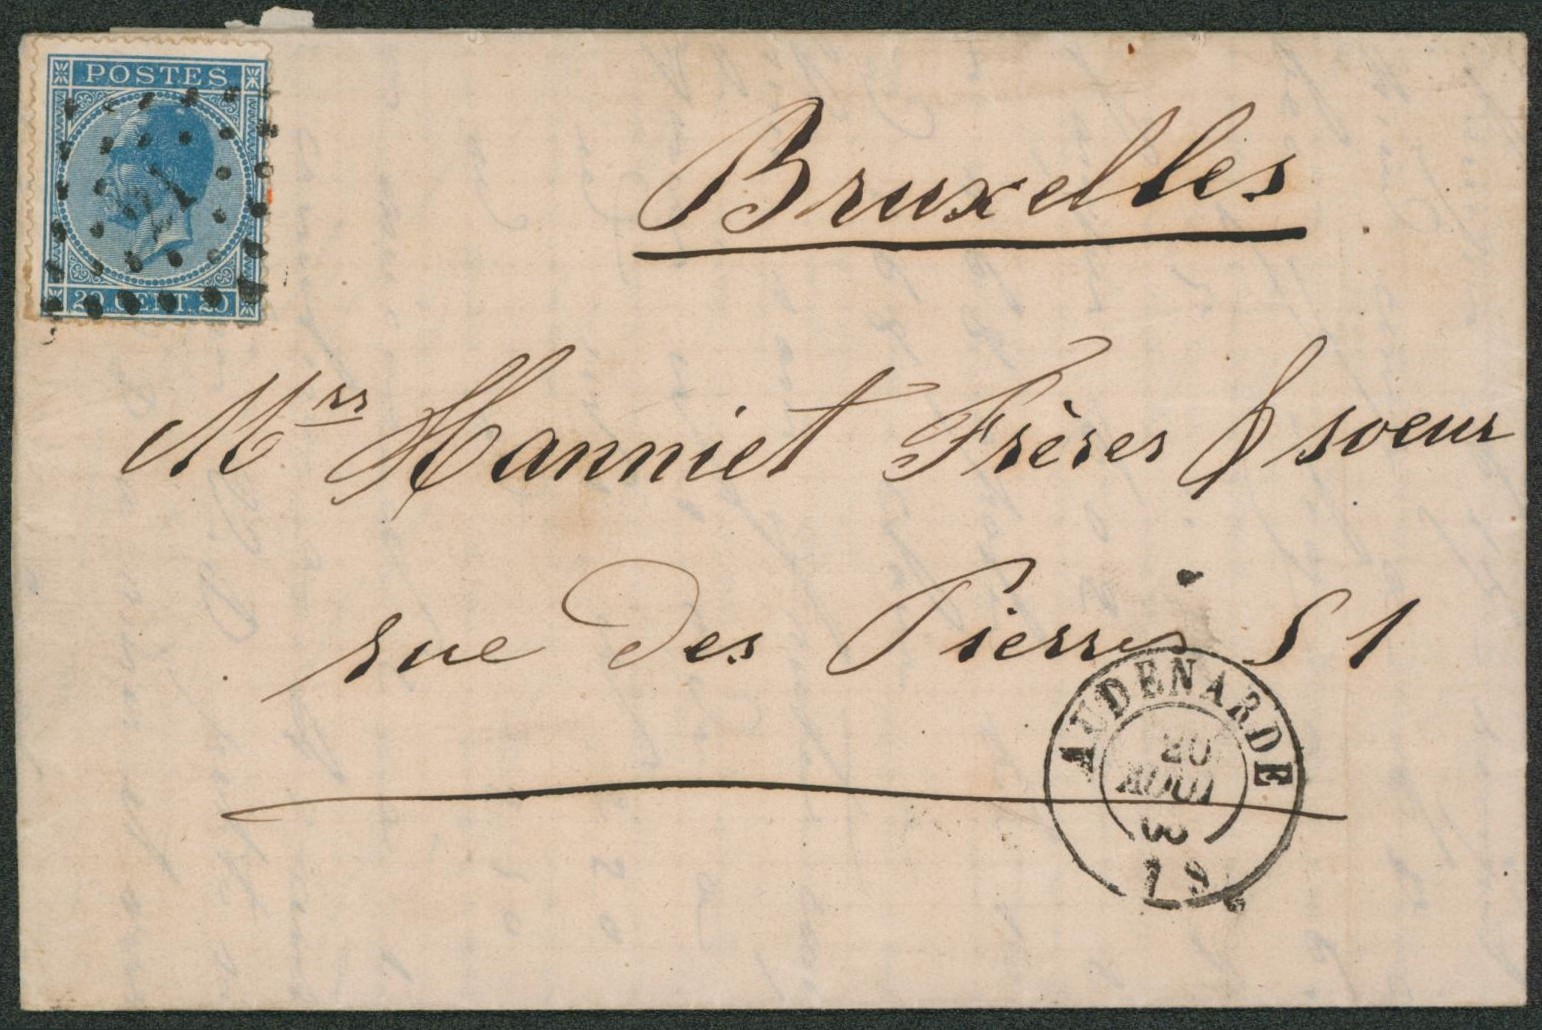 POSTES
21
20 CENT. 20
Bruxelles
Mrs Hanniet Frères & soeur
rue des Pierres 51
AUDENARDE
20
AOUT